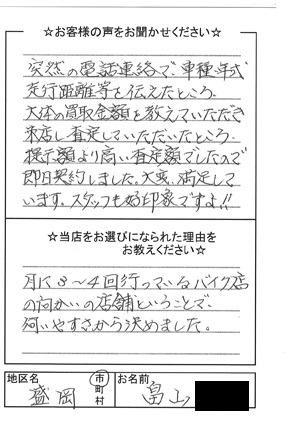 ☆お客様の声をお聞かせください☆
突然の電話連絡で、車種・年式
走行距離等を伝えたところ、
大体の買取金額を教えていただき
来店し査定していただいたところ、
提示額より高い査定額でしたので
即日契約しました。大変、満足して
います。スタッフも好印象ですよ!!
☆当店をお選びになられた理由を
お教えください☆
月に3〜4回行っているバイク店
の向かいの店舗ということで、
伺いやすさから決めました。
地区名 市 お名前
盛岡 町 畠山
村